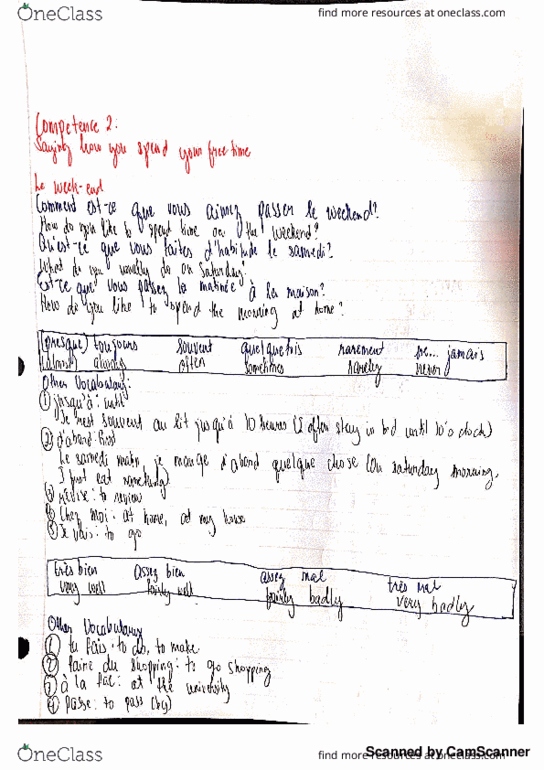 OneClass
find more resources at oneclass.com
Competence 2:
Saying how you spend your free time
Le week-end
Comment est-ce que vous aimez passer le weekend?
How do you like to spend time on the weekend?
Qu'est-ce que vous faites d'habitude le samedi?
What do you usually do on Saturday?
Est-ce que vous passez la matinée à la maison?
How do you like to spend the morning at home?
(presque) toujours souvent quelquefois rarement ne... jamais
(almost) always often sometimes rarely never
Other Vocabulary:
① jusqu'à: until
Je reste souvent au lit jusqu'à 10 heures (I often stay in bed until 10 o'clock)
② d'abord: first
Le samedi matin, je mange d'abord quelque chose (On saturday morning,
I first eat something)
③ révise: to review
④ Chez moi: at home, at my house
⑤ Je vais: to go
très bien assez bien assez mal très mal
very well fairly well fairly badly very badly
Other Vocabulary
① tu fais: to do, to make
② faire du shopping: to go shopping
③ à la fac: at the university
④ passe: to pass (by)
OneClass
find more resources at oneclass.com
Scanned by CamScanner